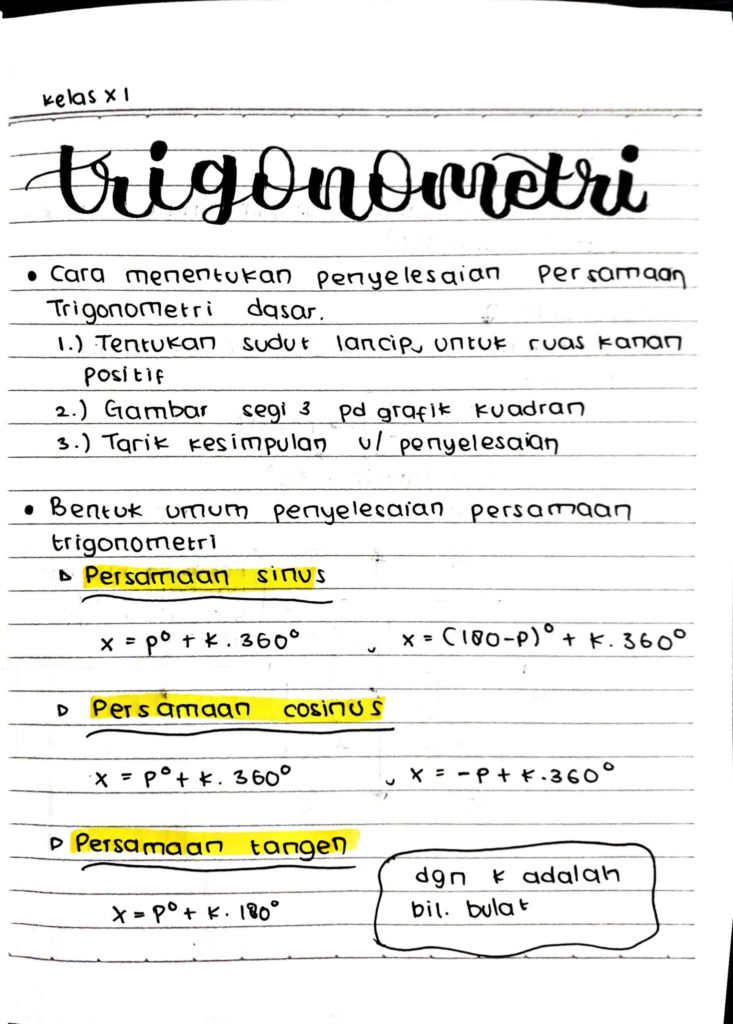 Kelas XI
trigonometri
• Cara menentukan penyelesaian Persamaan
Trigonometri dasar.
1.) Tentukan sudut lancip, untuk ruas kanan
positif
2.) Gambar segi 3 pd grafik kuadran
3.) Tarik kesimpulan u/ penyelesaian
• Bentuk umum penyelesaian persamaan
trigonometri
▷ Persamaan sinus
x = p° + k. 360° , x = (180-p)° + k. 360°
▷ Persamaan cosinus
x = p° + k. 360° , x = -p + k. 360°
▷ Persamaan tangen
x = p° + k. 180°
dgn k adalah
bil. bulat